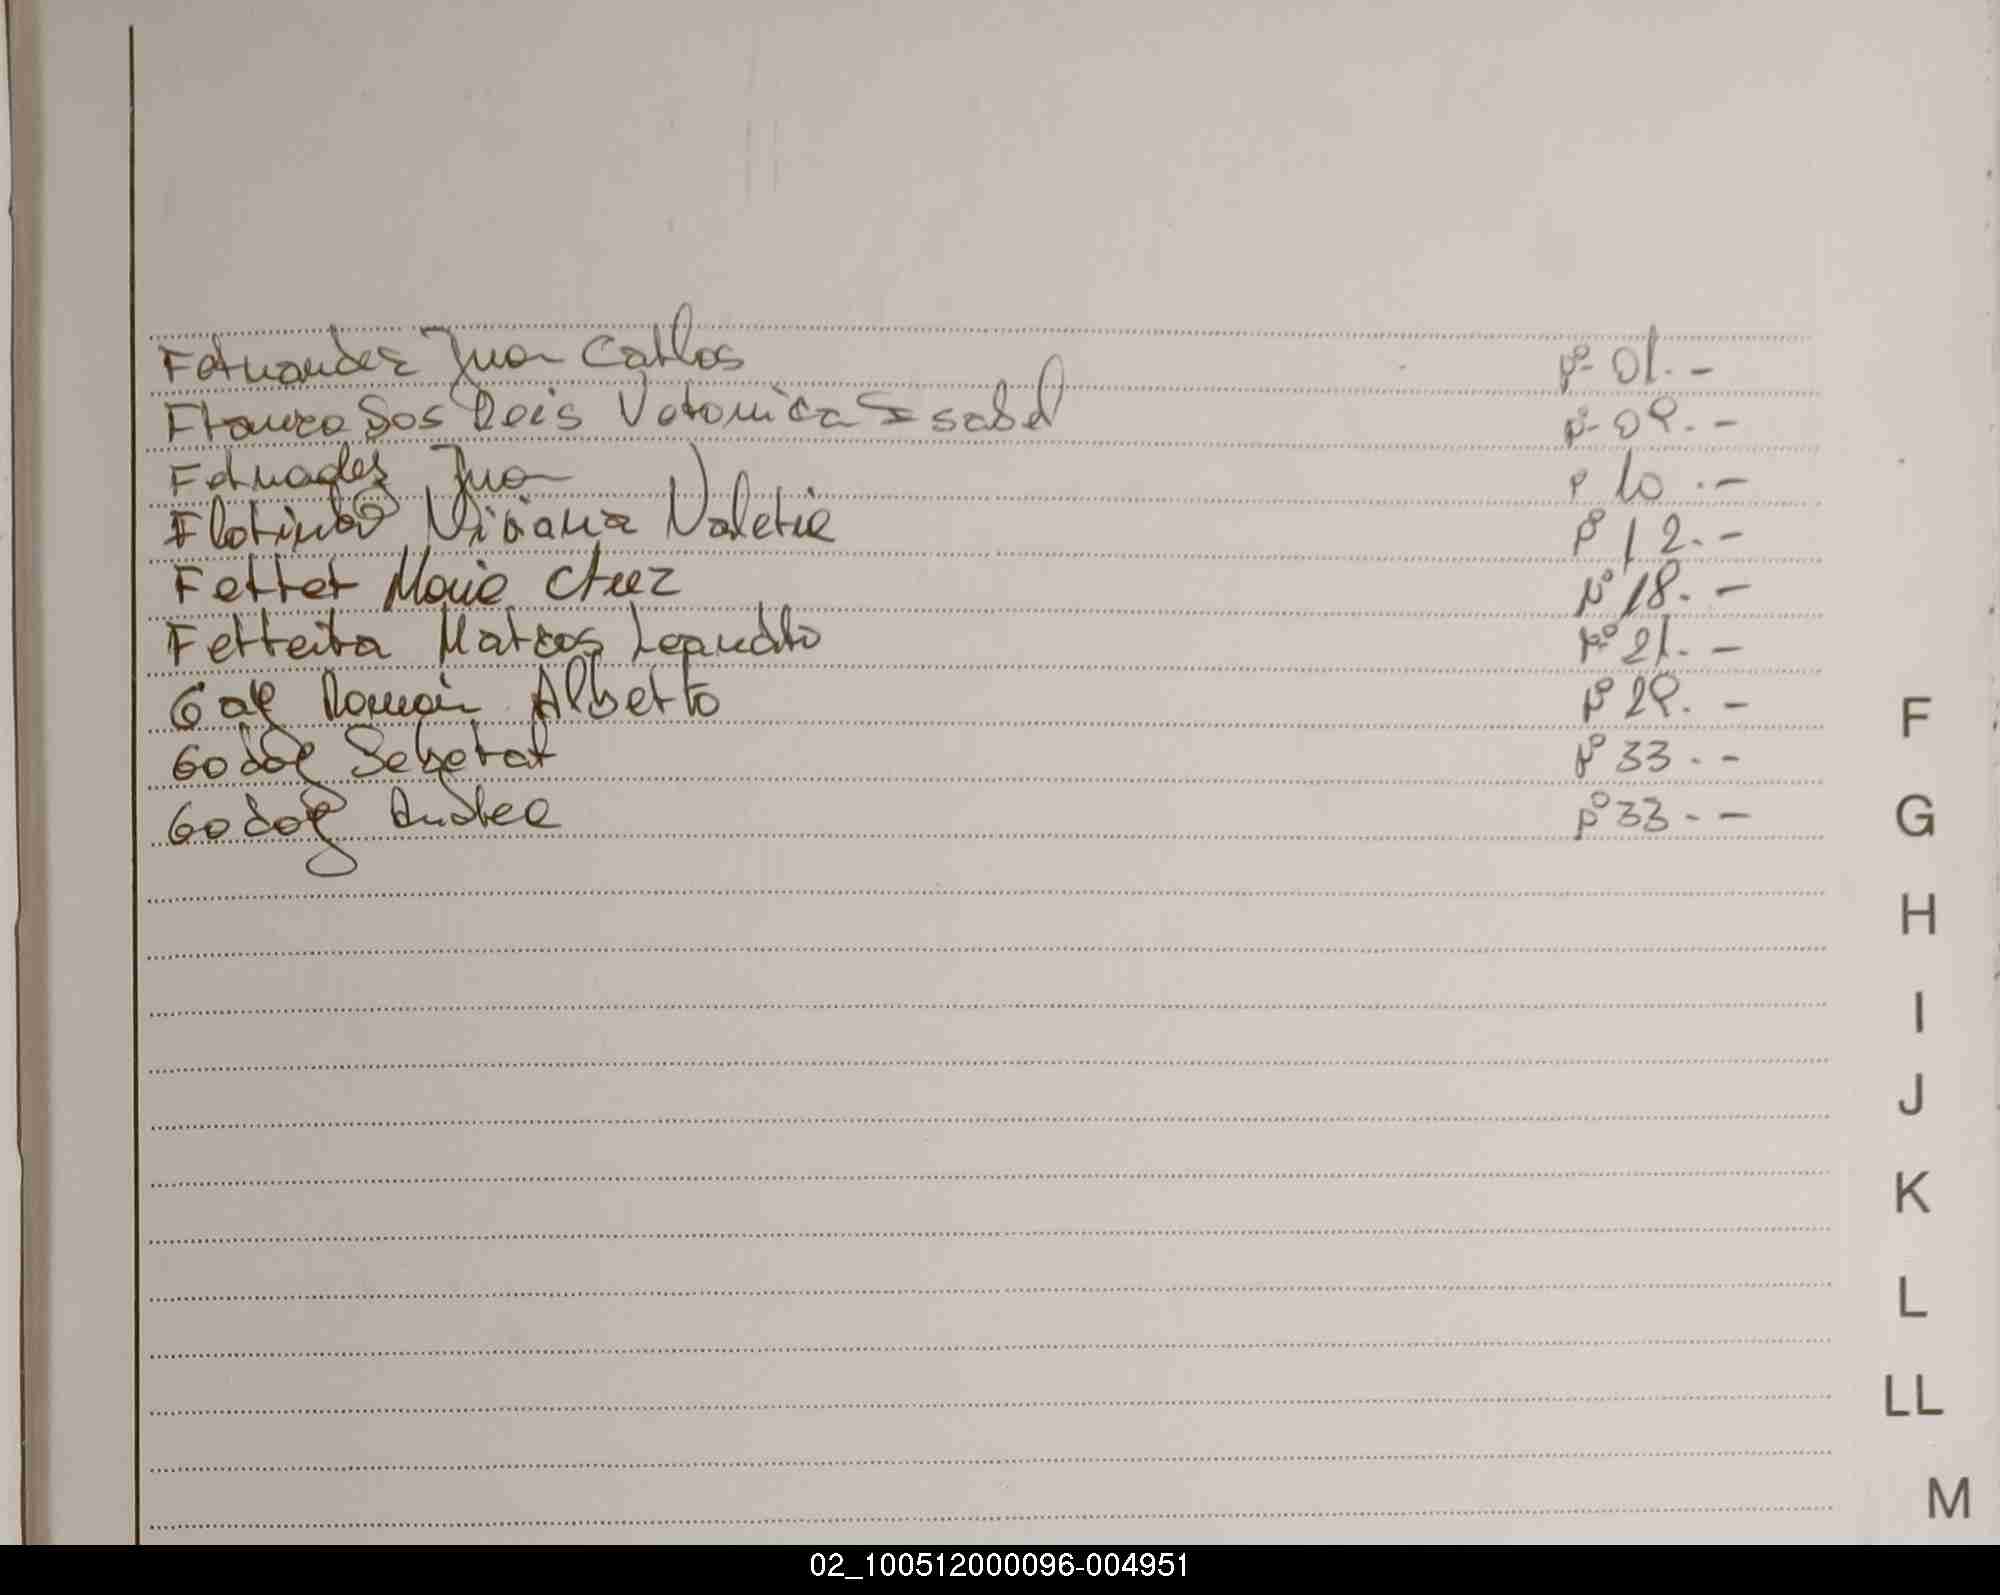 Fernandez Juan Carlos Fº 01.-
Franco Dos Reis Veronica Isabel Fº 09.-
Fernades Juan Fº 10.-
Florindo Viviana Valeria Fº 12.-
Ferrer Maria Cruz Fº 18.-
Ferreira Marcos Leandro Fº 21.-
Gay Roman Alberto Fº 29.-
Godoy Fº 33.-
Godoy Andrea Fº 33.-
F
G
H
I
J
K
L
LL
M
02_100512000096-004951